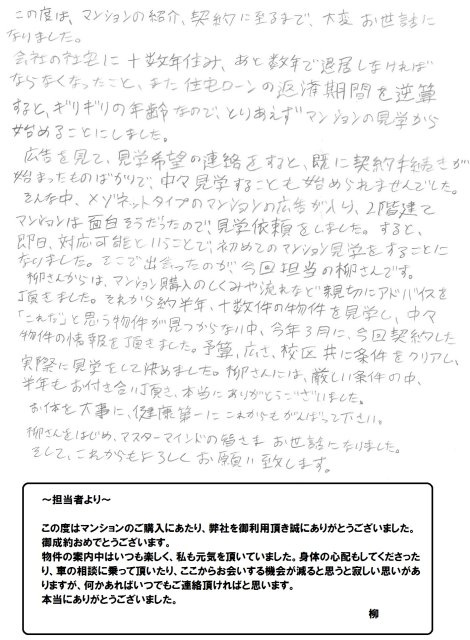 この度は、マンションの紹介、契約に至るまで、大変お世話に
なりました。
会社の社宅に十数年住み、あと数年で退居しなければ
ならなくなったこと、また住宅ローンの返済期間を逆算
すると、ギリギリの年齢なので、とりあえずマンションの見学から
始めることにしました。
広告を見て、見学希望の連絡をすると、既に契約手続きが
始まったものばかりで、中々見学することも始められませんでした。
そんな中、メゾネットタイプのマンションの広告が入り、2階建て
マンションは面白そうだったので、見学依頼をしました。すると、
即日、対応可能ということで、初めてのマンション見学をすることに
なりました。そこで出会ったのが、今回担当の柳さんです。
柳さんからは、マンション購入のしくみや流れなど親切にアドバイスを
頂きました。それから約半年、十数件の物件を見学し、中々
「これだ」と思う物件が見つからない中、今年3月に、今回契約した
物件の情報を頂きました。予算、広さ、校区共に条件をクリアし、
実際に見学をして決めました。柳さんには、厳しい条件の中、
半年もお付き合い頂き、本当にありがとうございました。
お体を大事に、健康第一にこれからもがんばって下さい。
柳さんをはじめ、マスターマインドの皆さま お世話になりました。
そして、これからもよろしくお願い致します。
～担当者より～
この度はマンションのご購入にあたり、弊社を御利用頂き誠にありがとうございました。
御成約おめでとうございます。
物件の案内中はいつも楽しく、私も元気を頂いていました。身体の心配もしてくださった
り、車の相談に乗って頂いたり、ここからお会いする機会が減ると思うと寂しい思いがあ
りますが、何かあればいつでもご連絡頂ければと思います。
本当にありがとうございました。
柳